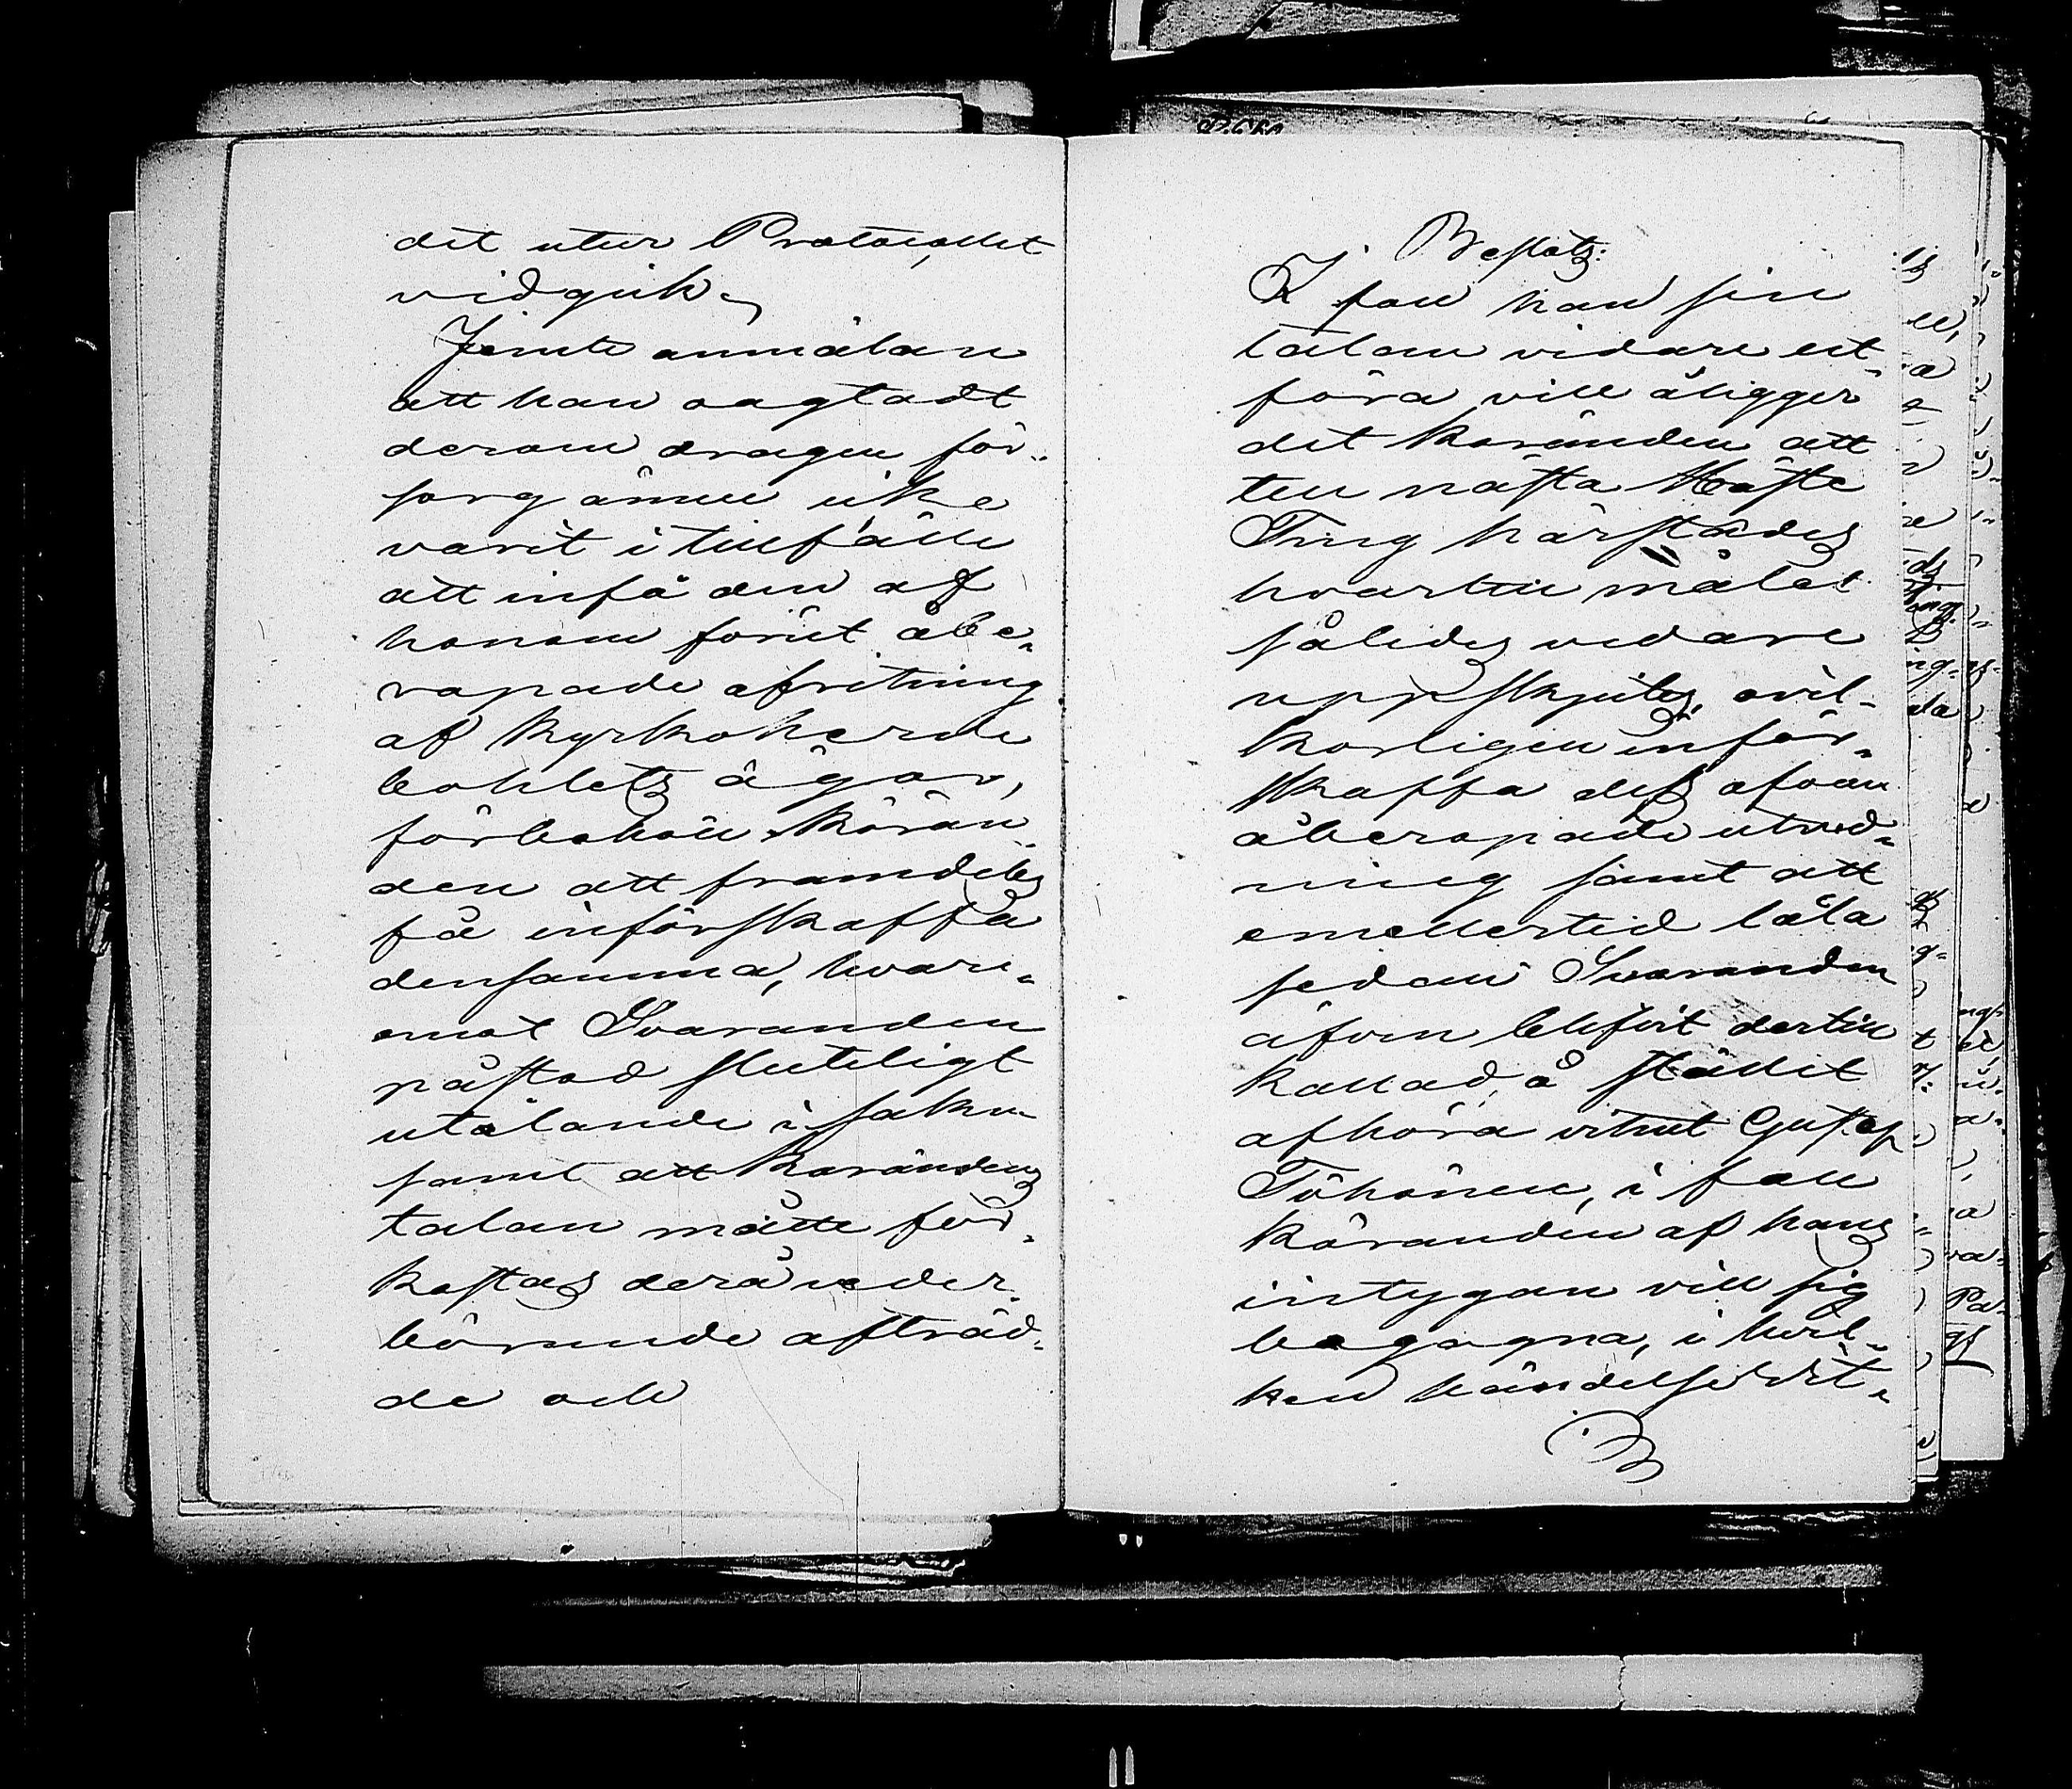 det utur Protocollet
vidgick.
Jemte anmälan
att han oagtadt
derom dragen för-
sorg ännu icke
varit i tillfälle
att infå den af
honom förut åbe-
ropade afritning
af Kyrkoherde
bohlets ägor,
förbehöll Käran-
den att framdeles
få införskaffa
densamma, hvare-
emot Svaranden
påstod sluteligt
utslående i saken
samt att Kärandens
talan måtte för-
kastas derå veder-
börande afträd-
de och
Beslöts:
I fall han sin
talan vidare ut-
föra vill åligger
det Käranden att
till nästa Höste
Ting härstädes
hvartill målet
således vidare
uppskjutes, ovil-
korligen inför-
skaffa dess ofvan
åberopade utred-
ning samt att
emellertid låta
sedan Svaranden
äfven blifvit dertill
kallad, å stället
afhöra vitnet Gustaf
Töhönen, i fall
Käranden af hans
intygan vill sig
begagna, i hvil-
ken händelse vit-